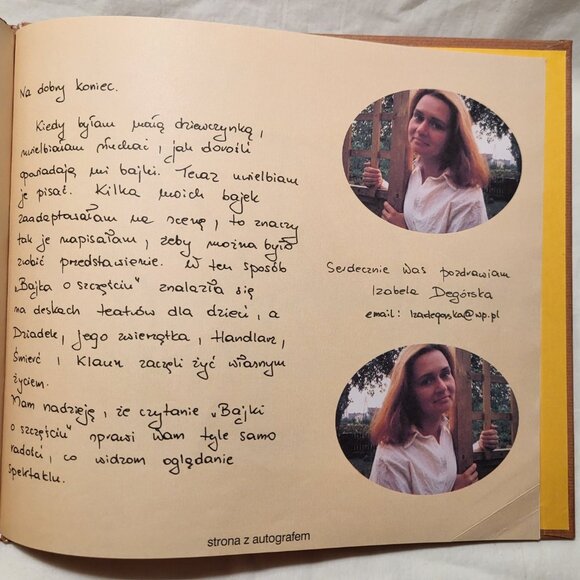 Na dobry koniec.
Kiedy byłam małą dziewczynką,
uwielbiałam słuchać, jak dorośli
opowiadają mi bajki. Teraz uwielbiam
je pisać. Kilka moich bajek
zaadaptowałam na scenę, to znaczy
tak je napisałam, żeby można było
zrobić przedstawienie. W ten sposób
„Bajka o szczęściu" znalazła się
na deskach teatrów dla dzieci, a
Dziadek, jego zwierzątka, Handlarz,
Śmierć i Klaun zaczęli żyć własnym
życiem.
Mam nadzieję, że czytanie „Bajki
o szczęściu" sprawi Wam tyle samo
radości, co widzom oglądanie
spektaklu.
Serdecznie Was pozdrawiam
Izabela Degórska
email: izadegorska@wp.pl
strona z autografem